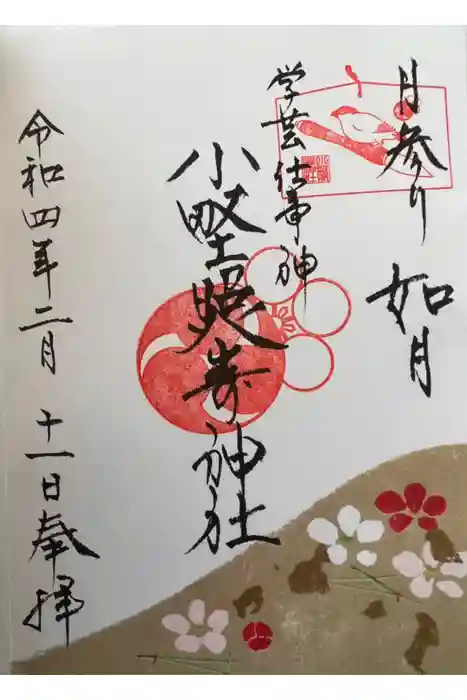 月参り 如月
学芸仕事神
小野照崎神社
令和四年二月 十一日奉拝